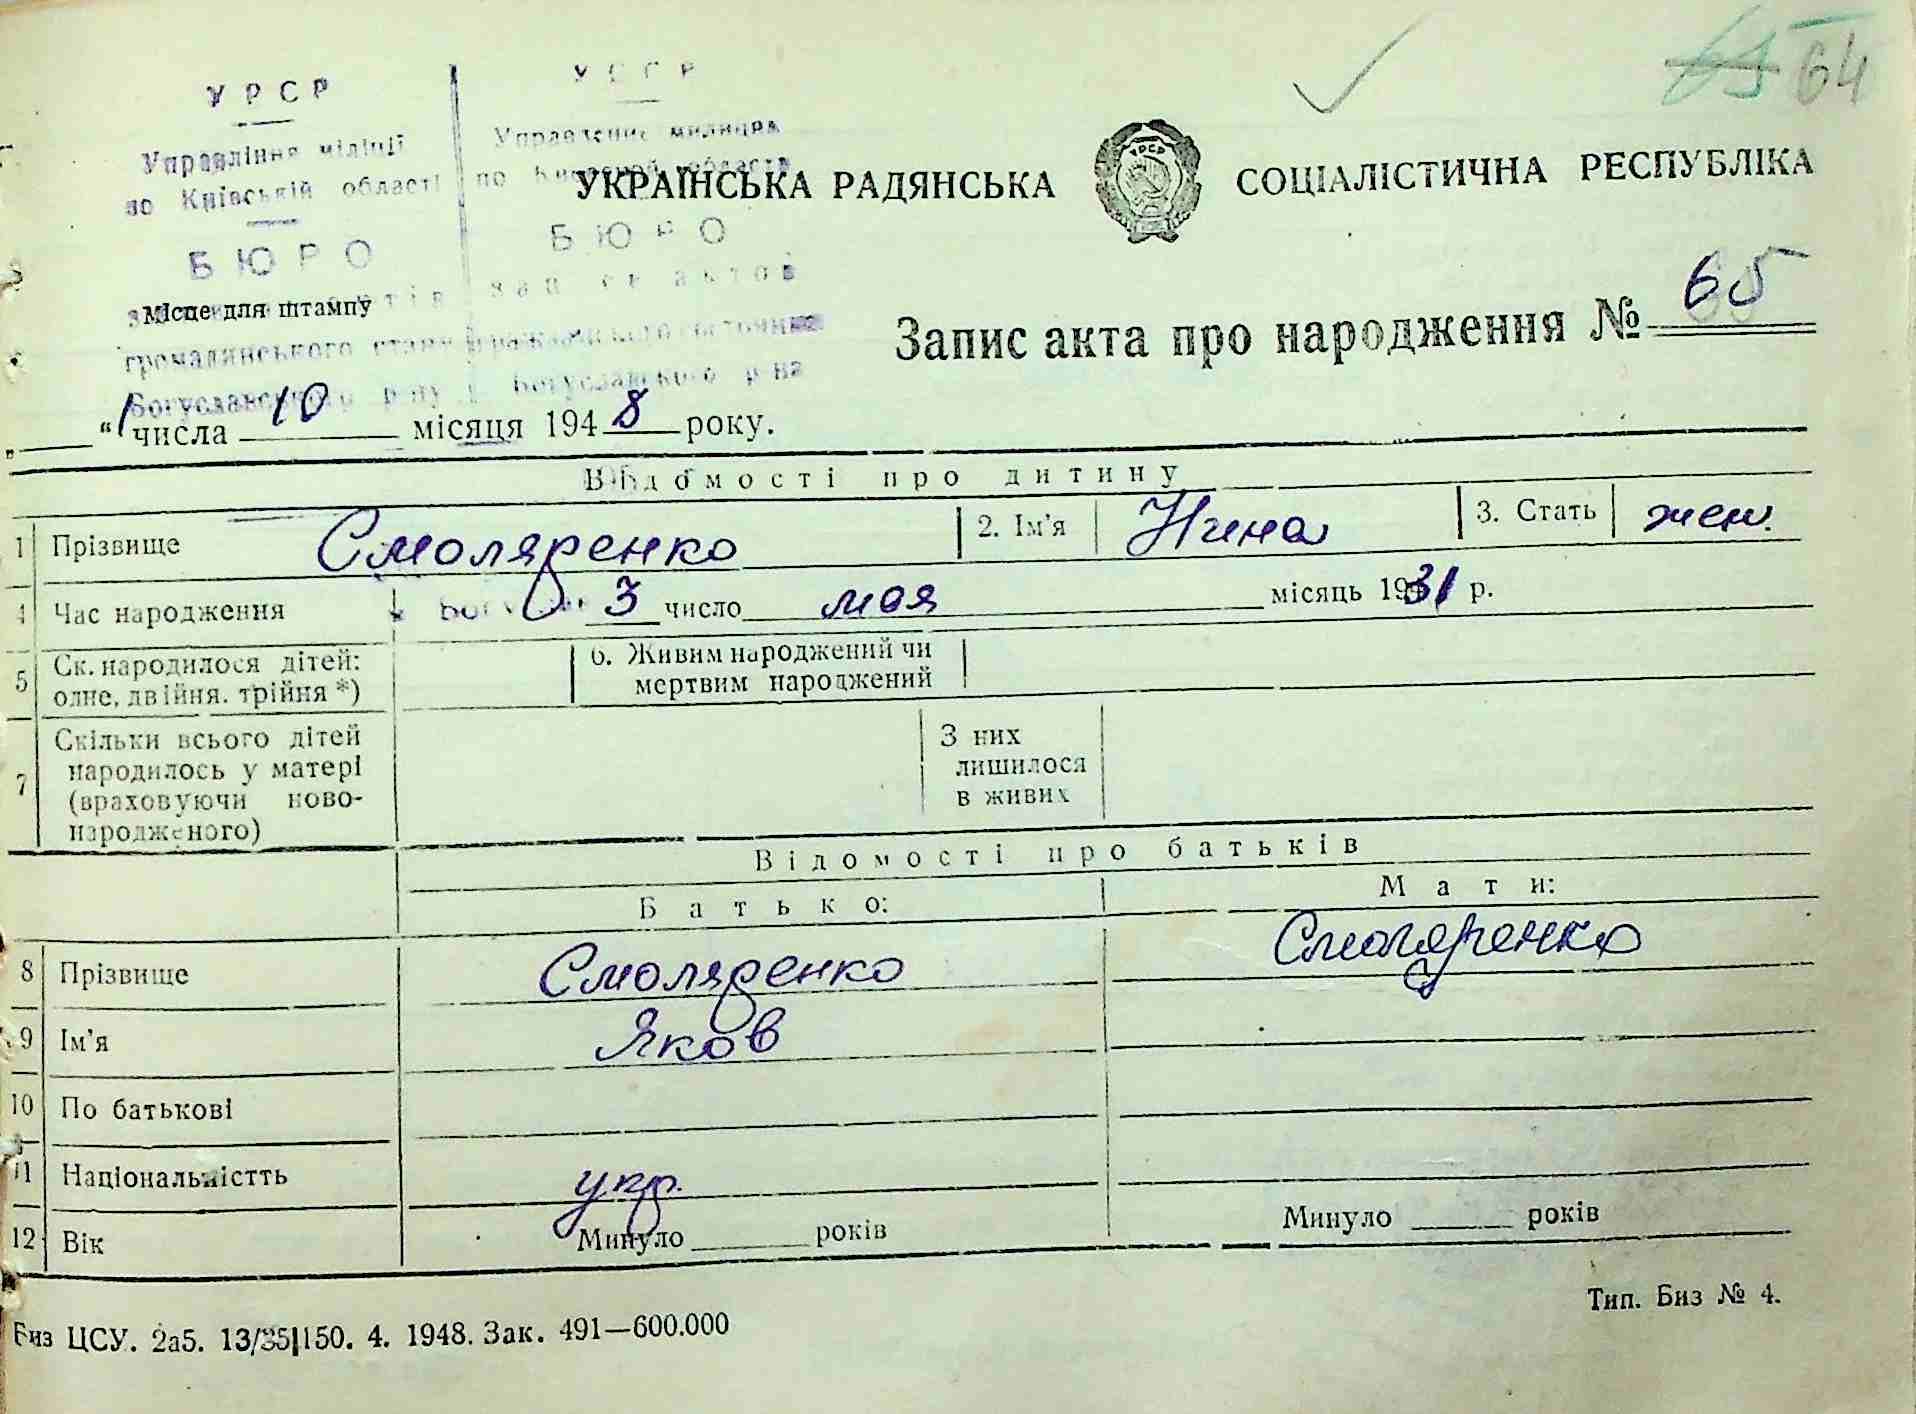 64
УРСР
УССР
Управління міліції
по Київській області
Управление милиции
по Киевской области
УКРАЇНСЬКА РАДЯНСЬКА СОЦІАЛІСТИЧНА РЕСПУБЛІКА
БЮРО
БЮРО
Місце для штампу
громадянського стану
гражданского состояния
Богуславського р-ну
Богуславского р-на
Запис акта про народження № 65
„ “ 1 числа 10 місяця 1948 року.
Відомості про дитину
1 Прізвище Смоляренко 2. Ім'я Нина 3. Стать жен.
4 Час народження 3 число мая місяць 1931 р.
5 Ск. народилося дітей: одне, двійня, трійня *) 6. Живим народжений чи мертвим народжений
7 Скільки всього дітей народилось у матері (враховуючи ново-народженого) З них лишилося в живих
Відомості про батьків
Батько: Мати:
8 Прізвище Смоляренко Смоляренко
9 Ім'я Яков
10 По батькові
11 Національністть укр.
12 Вік Минуло років Минуло років
Тип. Биз № 4.
Биз ЦСУ. 2а5. 13/35|150. 4. 1948. Зак. 491—600.000